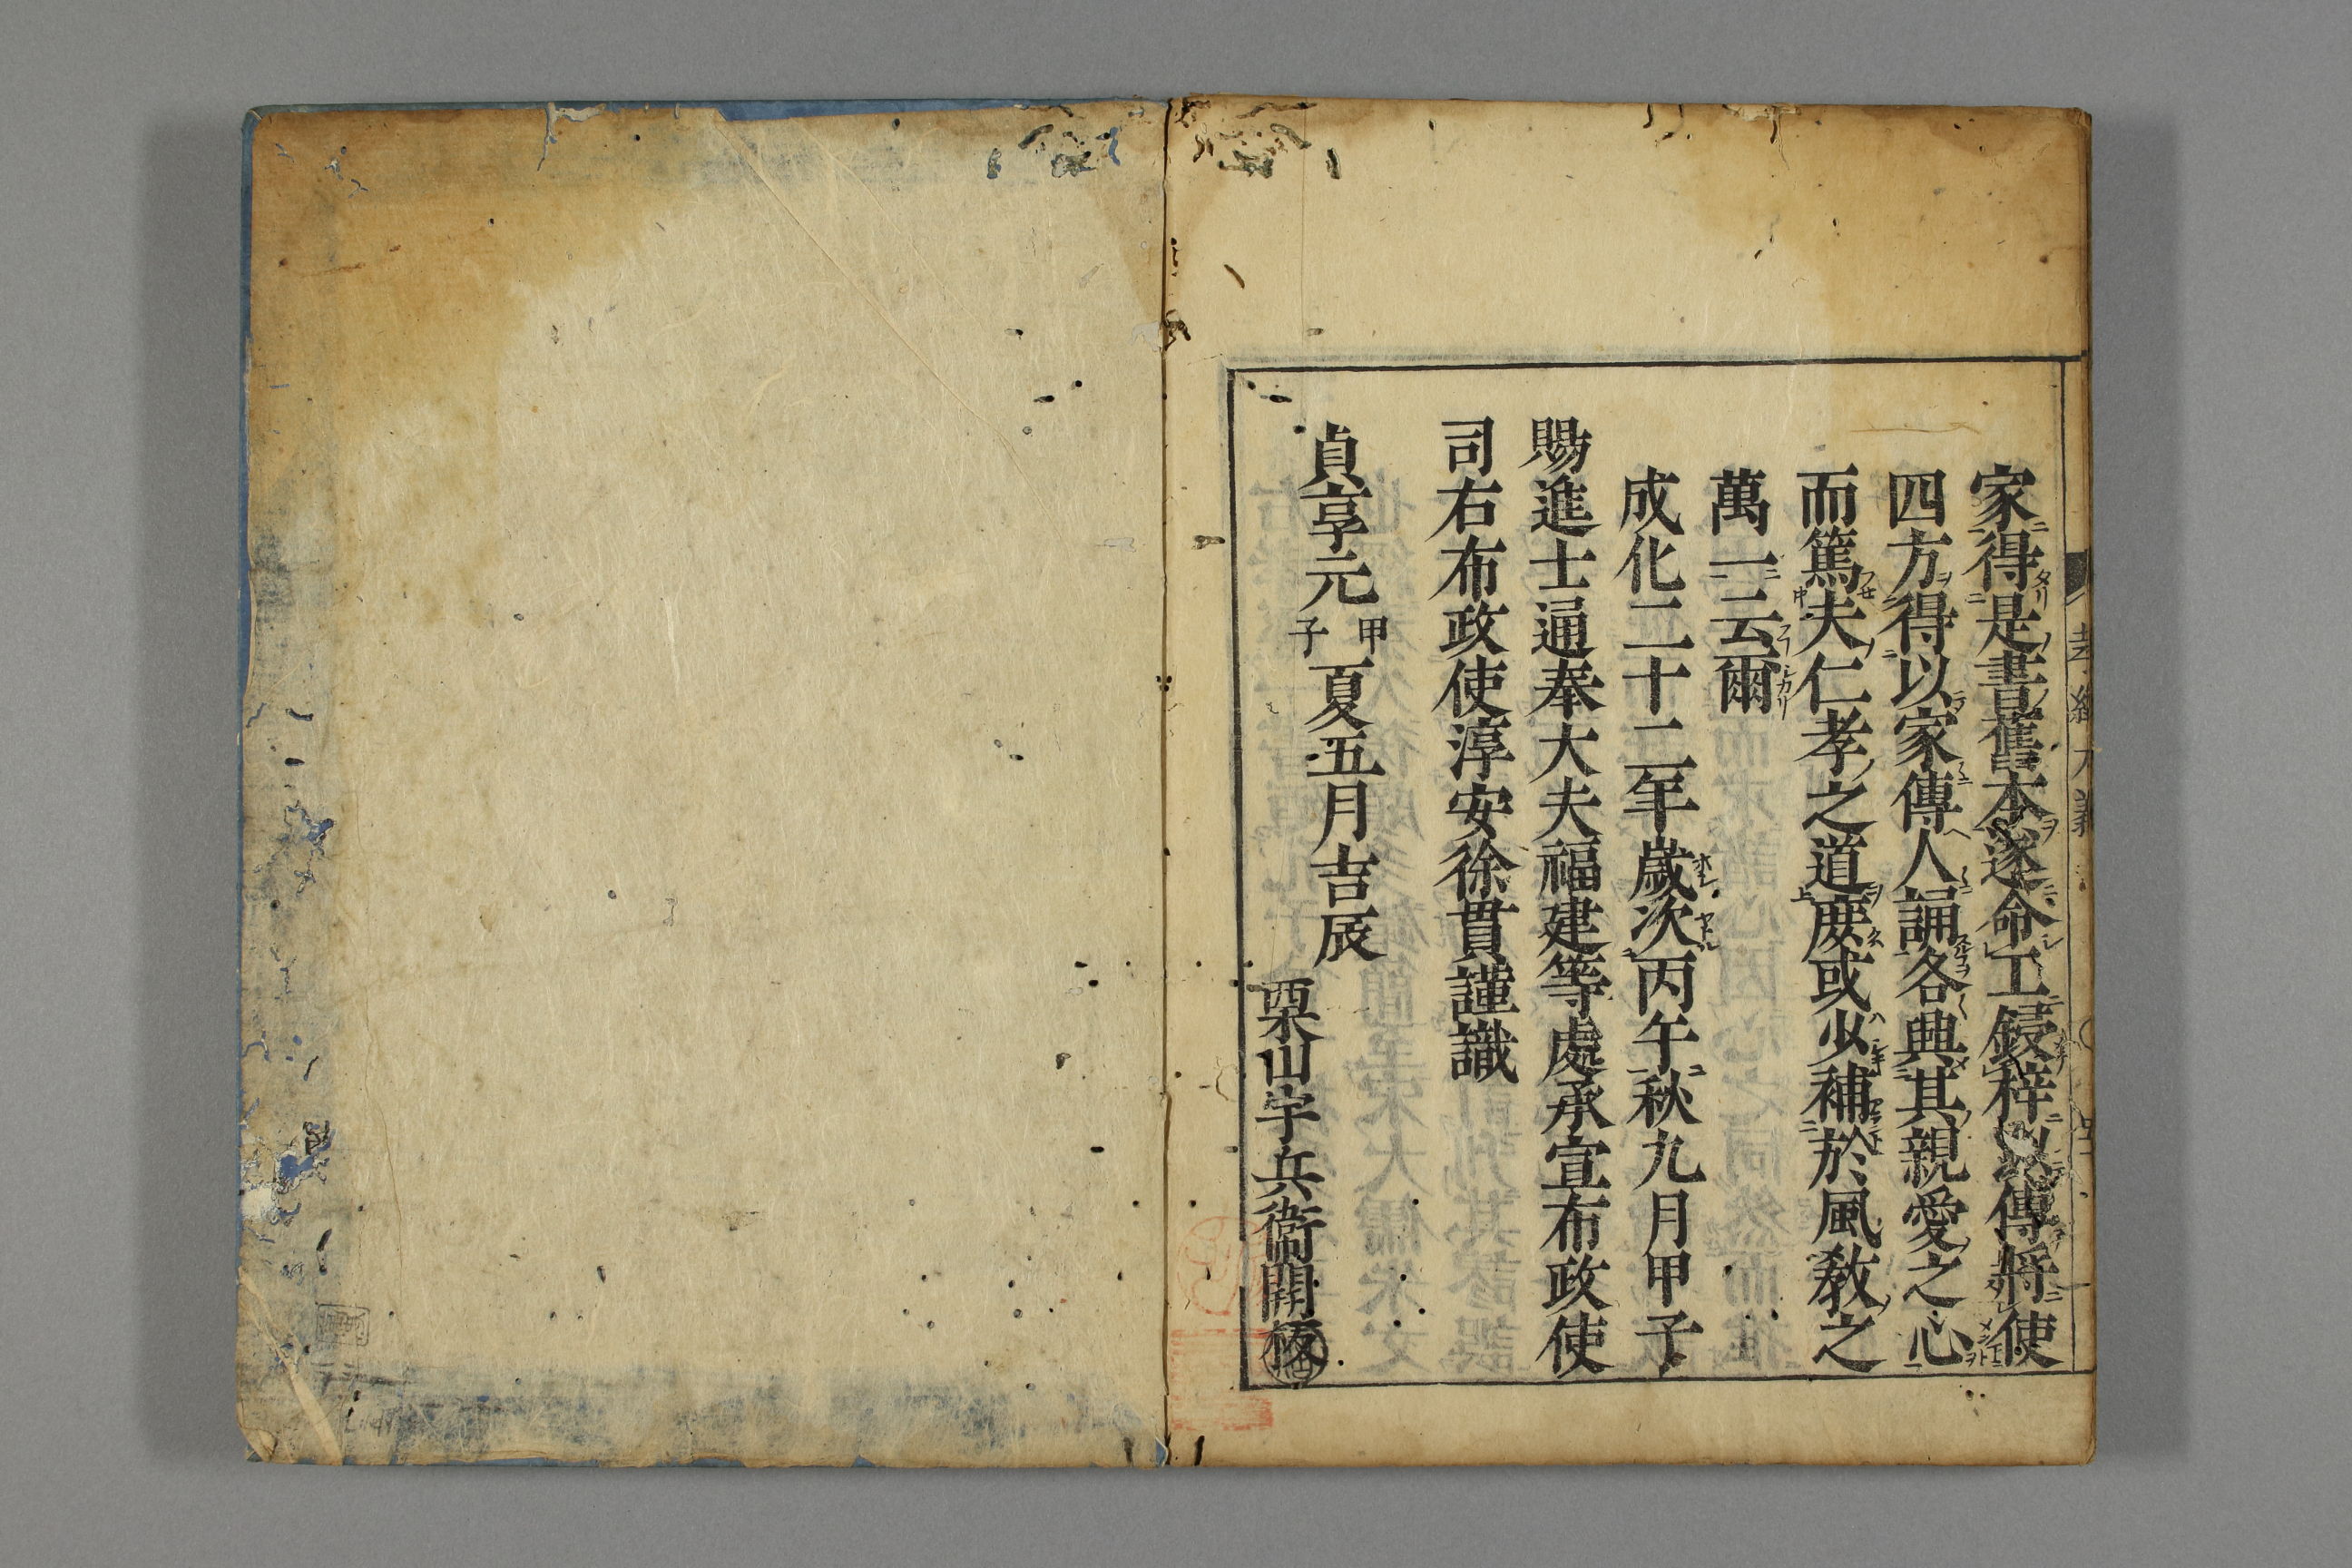 家得是書舊本遂命工鋟梓以傳將使
四方得以家傳人誦各興其親愛之心
而篤夫仁孝之道庻或少補於風敎之
萬一云爾
成化二十二年歲次丙午秋九月甲子
賜進士通奉大夫福建等處承宣布政使
司右布政使淳安徐貫謹識
貞享元甲子夏五月吉辰
栗山宇兵衞開板